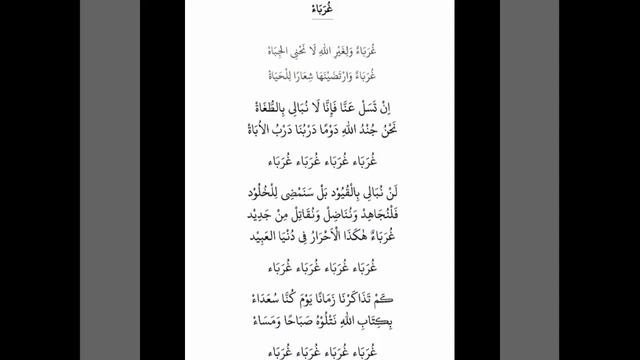 غُرَبَاءْ
غُرَبَاءْ وَلِغَيْرِ اللهِ لَا نَحْنِى الجِبَاهْ
غُرَبَاءْ وَارْتَضَيْنَهَا شِعَارًا لِلْحَيَاةْ
اِنْ تَسَلْ عَنَّا فَإِنَّا لَا نُبَالِى بِالطُّغَاةْ
نَحْنُ جُنْدُ اللهِ دَوْمًا دَرْبُنَا دَرْبُ الأُبَاةْ
غُرَبَاء غُرَبَاء غُرَبَاء غُرَبَاء
لَنْ نُبَالِى بِالْقُيُوْد بَلْ سَنَمْضِى لِلْخُلُوْد
فَلْنُجَاهِدْ وَنُنَاضِلْ وَنُقَاتِلْ مِنْ جَدِيْد
غُرَبَاءْ هٰكَذَا الْأَحْرَارُ فِى دُنْيَا العَبِيْد
غُرَبَاء غُرَبَاء غُرَبَاء غُرَبَاء
كَمْ تَذَاكَرْنَا زَمَانًا يَوْمَ كُنَّا سُعَدَاءْ
بِكِتَابِ اللهِ نَتْلُوْهُ صَبَاحًا وَمَسَاءْ
غُرَبَاء غُرَبَاء غُرَبَاء غُرَبَاء